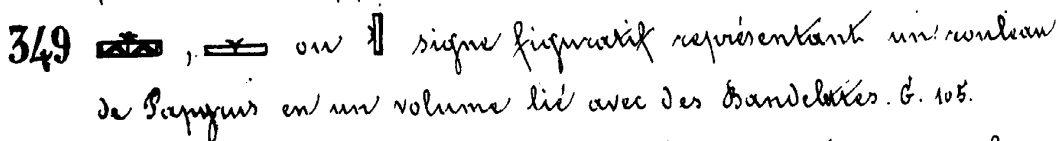 349 𓏛, 𓏛 ou 𓏜 signe figuratif représentant un rouleau
de Papyrus en un volume lié avec des Bandelettes. G. 105.